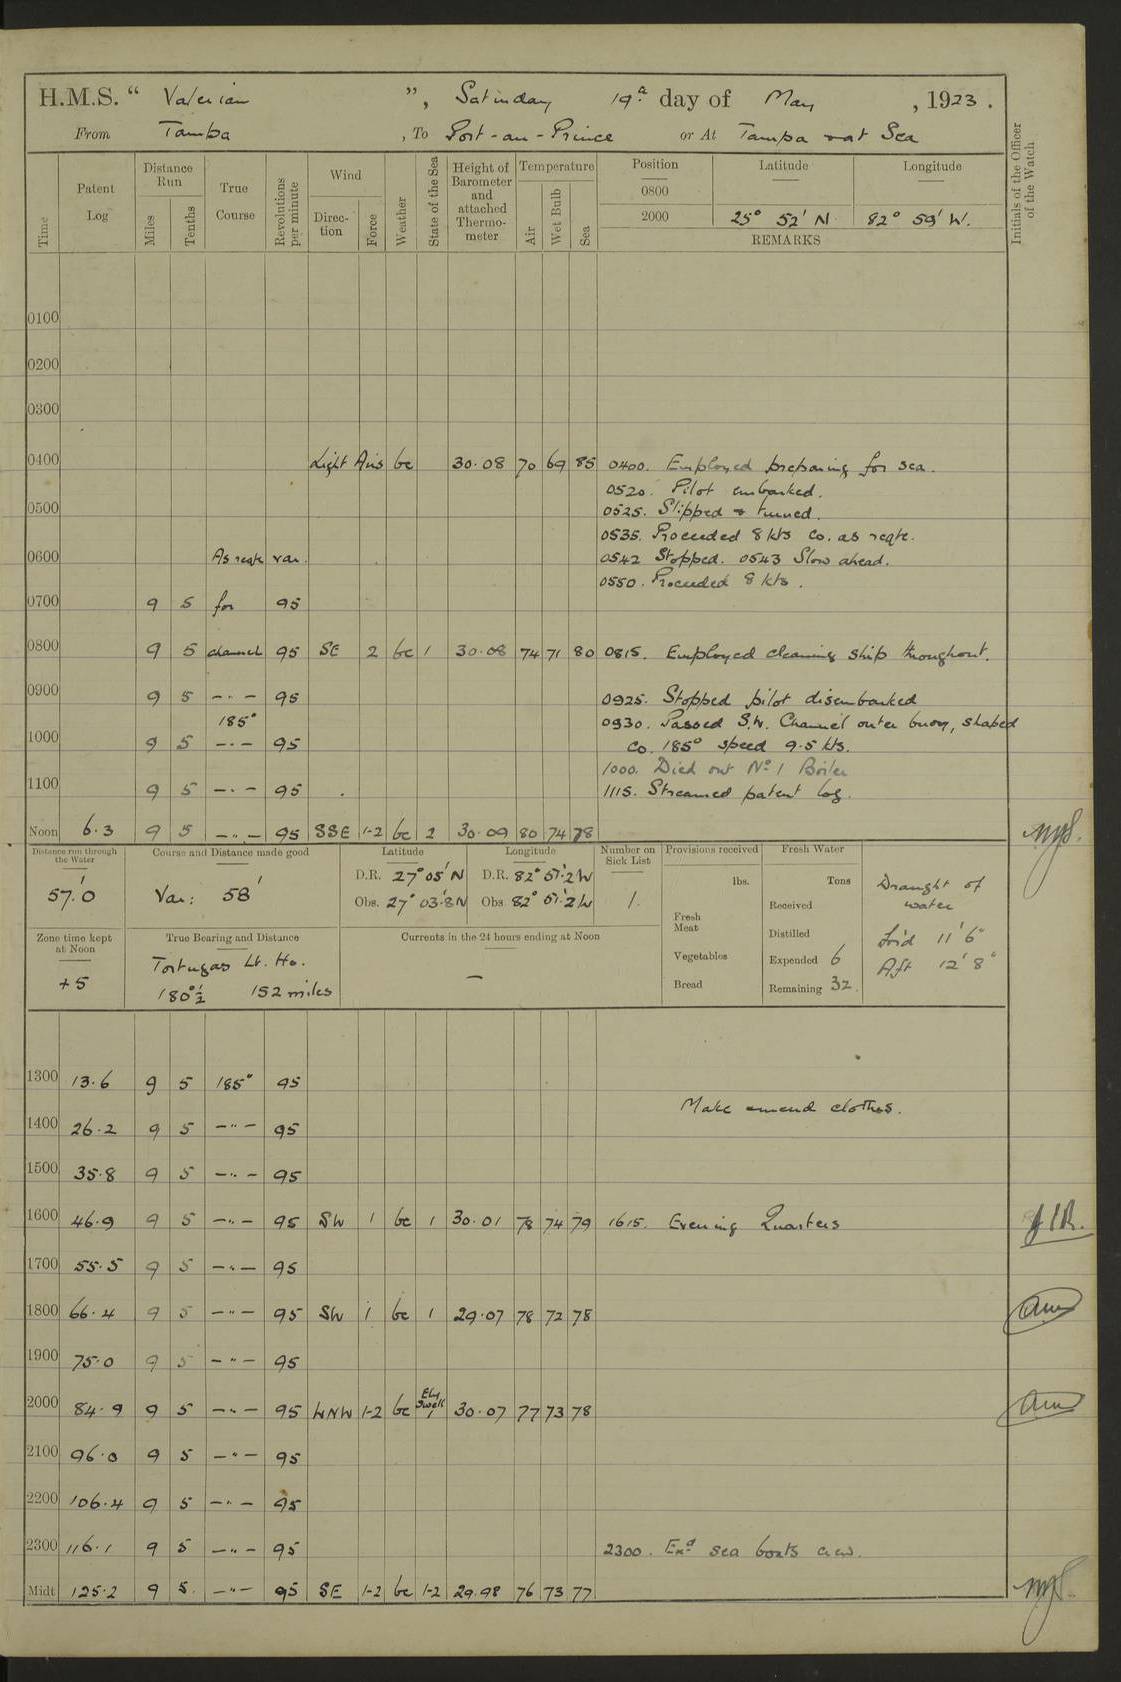 H.M.S. “ Valerian ”, Saturday 19th day of May , 1923.
From Tampa , To Port-au-Prince or At Tampa & at Sea
Time Patent Log Distance Run Miles Tenths True Course Revolutions per minute Wind Direc-tion Force Weather State of the Sea Height of Barometer and attached Thermo-meter Temperature Air Wet Bulb Sea Position Latitude Longitude Initials of the Officer of the Watch
0800
2000 25° 52' N 82° 59' W.
REMARKS
0100
0200
0300
0400 Light Airs bc 30.08 70 69 85 0400. Employed preparing for sea.
0520. Pilot embarked.
0500 0525. Slipped & turned.
0535. Proceeded 8 kts Co. as reqte.
0600 As reqte var. 0542 Stopped. 0543 Slow ahead.
0550. Proceeded 8 kts.
0700 9 5 for 95
0800 9 5 channel 95 SE 2 bc 1 30.08 74 71 80 0815. Employed cleaning ship throughout.
0900 9 5 — · — 95 0925. Stopped pilot disembarked
185° 0930. Passed S.W. Channel outer buoy, shaped
1000 9 5 — · — 95 Co. 185° speed 9.5 kts.
1000. Died out No 1 Boiler
1100 9 5 — · — 95 1115. Streamed patent log.
Noon 6.3 9 5 — " — 95 SSE 1-2 bc 2 30.09 80 74 78
Distance run through the Water Course and Distance made good Latitude Longitude Number on Sick List Provisions received Fresh Water
57.'0 Var: 58' D.R. 27° 05' N D.R. 82° 51.'2 W lbs. Tons Draught of water
Obs. 27° 03.'8 N Obs. 82° 51.'2 W 1. Received
Zone time kept at Noon True Bearing and Distance Currents in the 24 hours ending at Noon Fresh Meat Distilled For'd 11' 6"
+5 Tortugas Lt. Ho. — Vegetables Expended 6 Aft 12' 8"
180°½ 152 miles Bread Remaining 32.
1300 13.6 9 5 185° 95
Make & mend clothes.
1400 26.2 9 5 — " — 95
1500 35.8 9 5 — " — 95
1600 46.9 9 5 — " — 95 SW 1 bc 1 30.01 78 74 79 1615. Evening Quarters
1700 55.5 9 5 — " — 95
1800 66.4 9 5 — " — 95 SW 1 bc 1 29.07 78 72 78
1900 75.0 9 5 — " — 95
2000 84.9 9 5 — " — 95 WNW 1-2 bc Ely Swell 1 30.07 77 73 78
2100 96.0 9 5 — " — 95
2200 106.4 9 5 — " — 95
2300 116.1 9 5 — " — 95 2300. Exd sea boats crew.
Midt 125.2 9 5 — " — 95 SE 1-2 bc 1-2 29.98 76 73 77